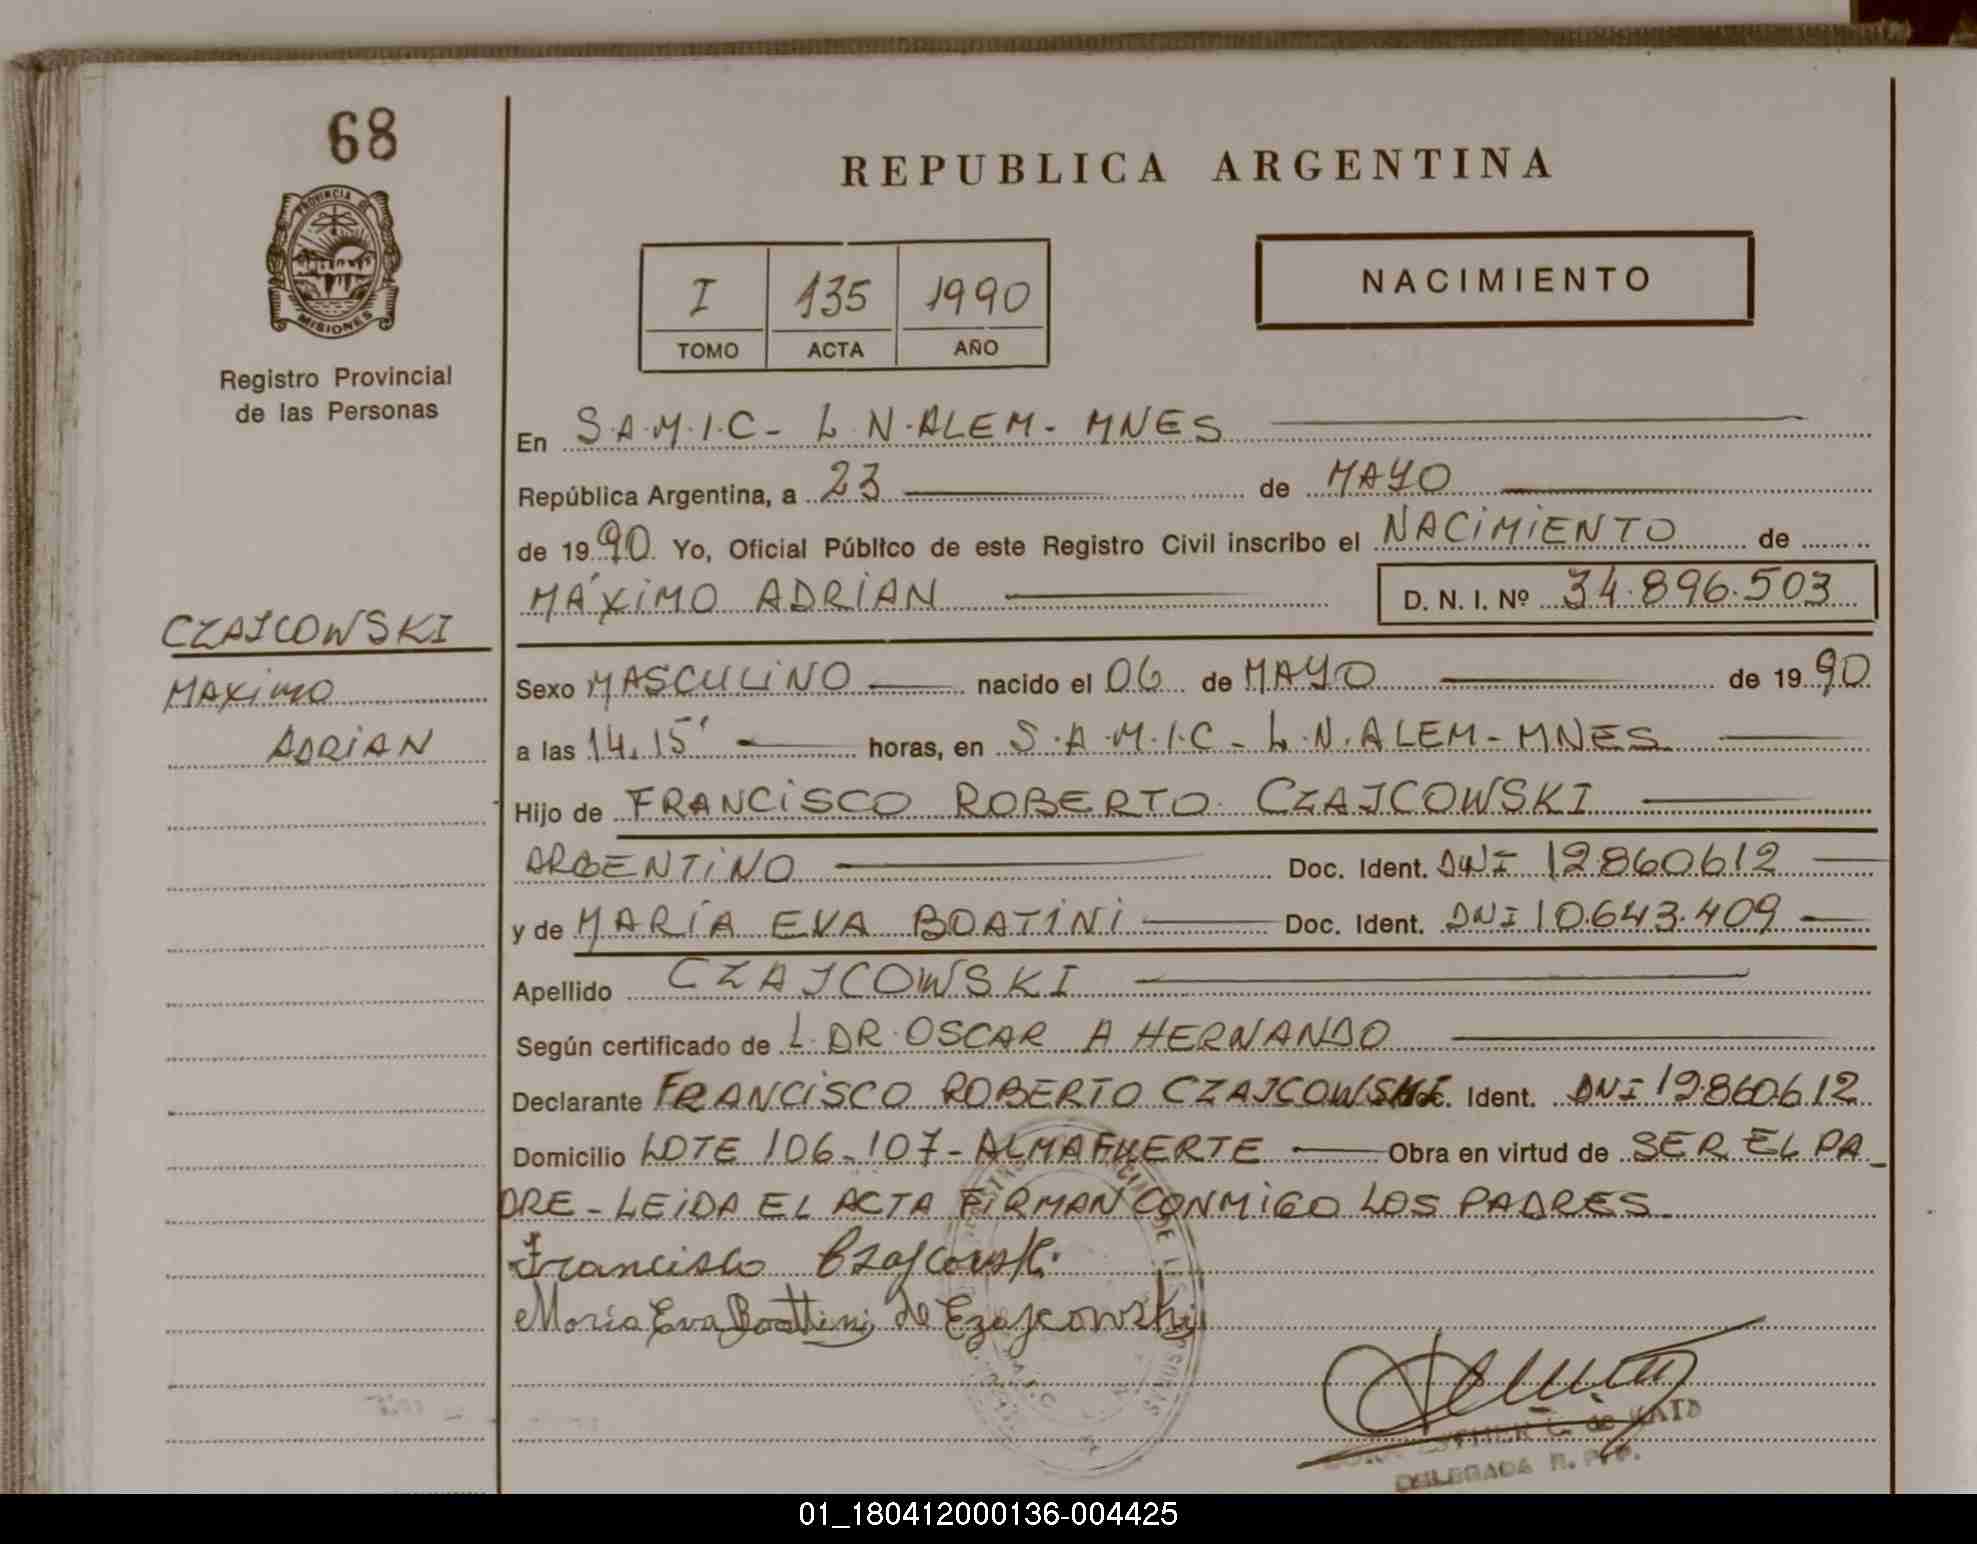 68
PROVINCIA DE
MISIONES
Registro Provincial
de las Personas
CZAJCOWSKI
MAXIMO
ADRIAN
REPUBLICA ARGENTINA
I 135 1990
TOMO ACTA AÑO
NACIMIENTO
En S.A.M.I.C - L.N.ALEM - MNES
República Argentina, a 23 de MAYO
de 1990. Yo, Oficial Público de este Registro Civil inscribo el NACIMIENTO de
MÁXIMO ADRIAN D. N. I. Nº 34.896.503
Sexo MASCULINO nacido el 06 de MAYO de 1990
a las 14.15' horas, en S.A.M.I.C - L.N.ALEM - MNES
Hijo de FRANCISCO ROBERTO CZAJCOWSKI
ARGENTINO Doc. Ident. DNI 12.860612
y de MARÍA EVA BOATINI Doc. Ident. DNI 10.643.409
Apellido CZAJCOWSKI
Según certificado de L. DR. OSCAR A HERNANDO
Declarante FRANCISCO ROBERTO CZAJCOWSKI Doc. Ident. DNI 12.860.612
Domicilio LOTE 106-107- ALMAFUERTE Obra en virtud de SER EL PA_
DRE - LEIDA EL ACTA FIRMAN CONMIGO LOS PADRES
Francisco Czajcowski
María Eva Boattini de Czajcowski
DELEGADA R. P. P.
01_180412000136-004425